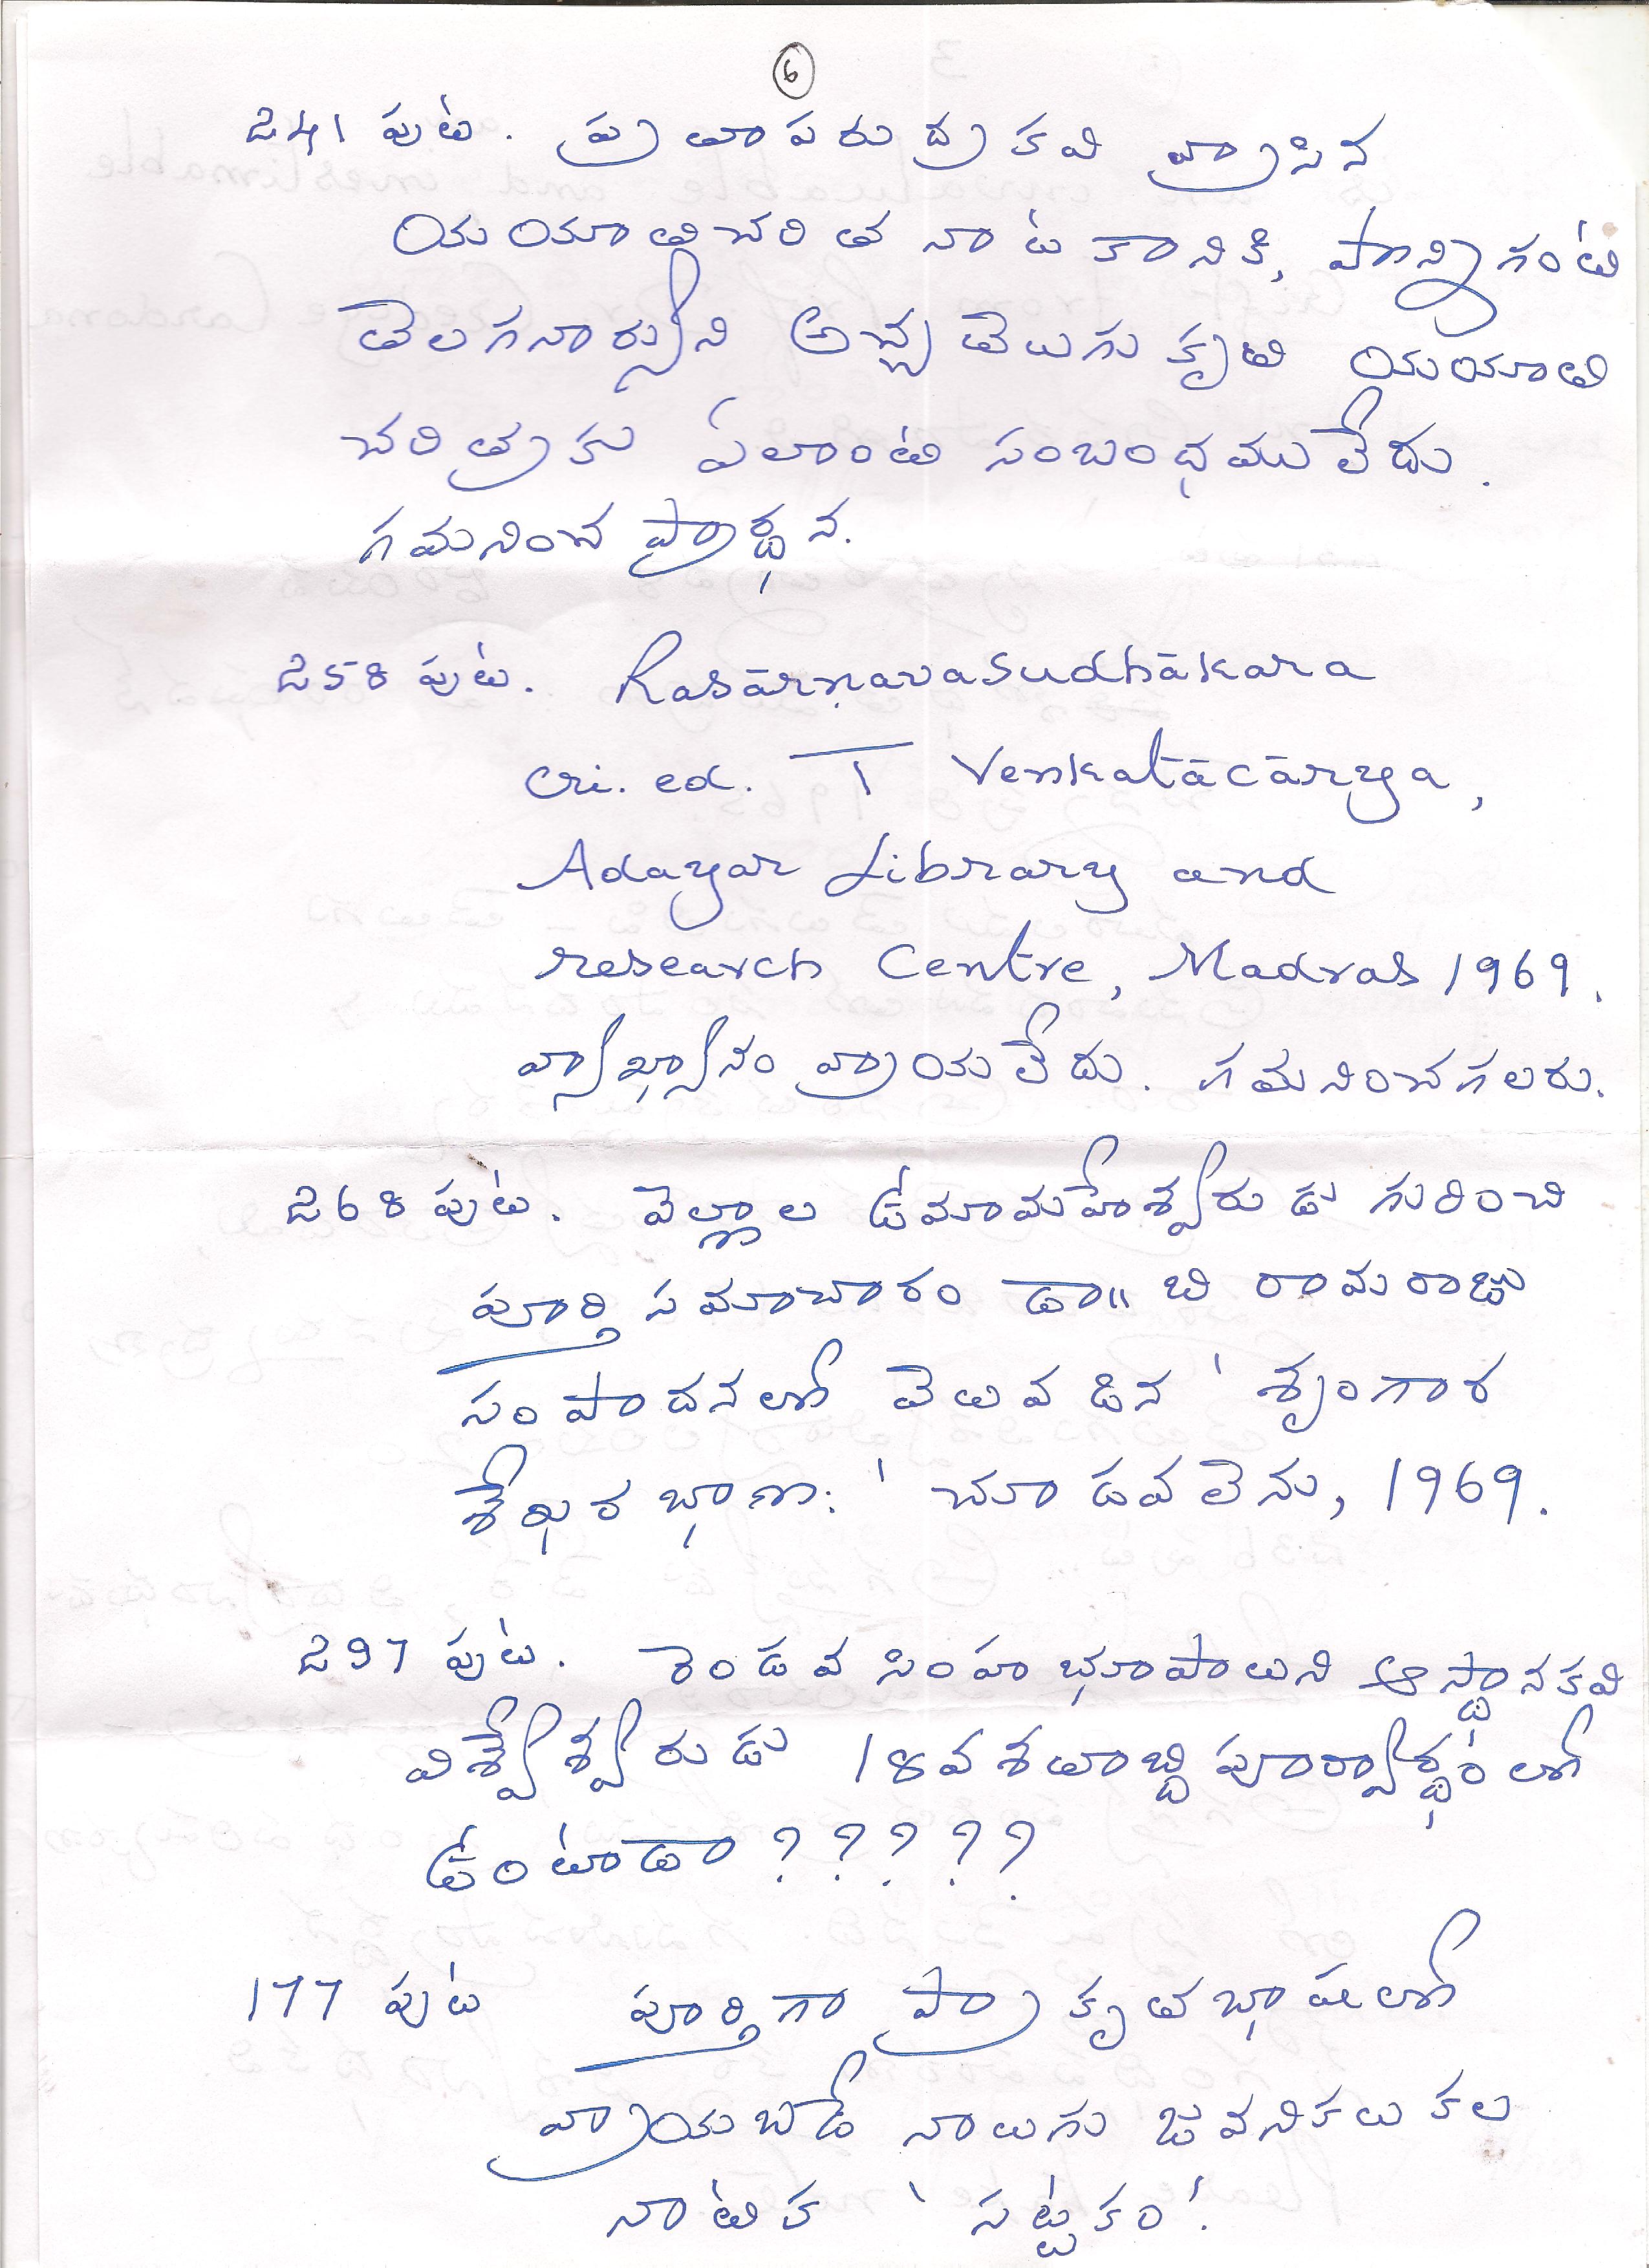 6
241 పుట. ప్రతాపరుద్రకవి వ్రాసిన
యయాతిచరిత నాటకానికి, పొన్నిగంటి
తెలగనార్యుని అచ్చ తెలుగు కృతి యయాతి
చరిత్రకు ఏలాంటి సంబంధము లేదు.
గమనించ ప్రార్థన.
258 పుట. Rasārṇavasudhākara
cri. ed. T Venkatācārya,
Adayar Library and
research Centre, Madras 1969.
వ్యాఖ్యానం వ్రాయలేదు. గమనించగలరు.
268 పుట. వెల్లాల ఉమామహేశ్వరుడు గురించి
పూర్తి సమాచారం డా॥ బి రామరాజు
సంపాదనలో వెలువడిన 'శృంగార
శేఖర భాణ:' చూడవలెను, 1969.
297 పుట. రెండవ సింహభూపాలుని ఆస్థానకవి
విశ్వేశ్వరుడు 18వ శతాబ్ది పూర్వార్థంలో
ఉంటాడా ?????
177 పుట పూర్తిగా ప్రాకృతభాషలో
వ్రాయబడే నాలుగు జవనికలు కల
నాటిక 'సట్టకం'.